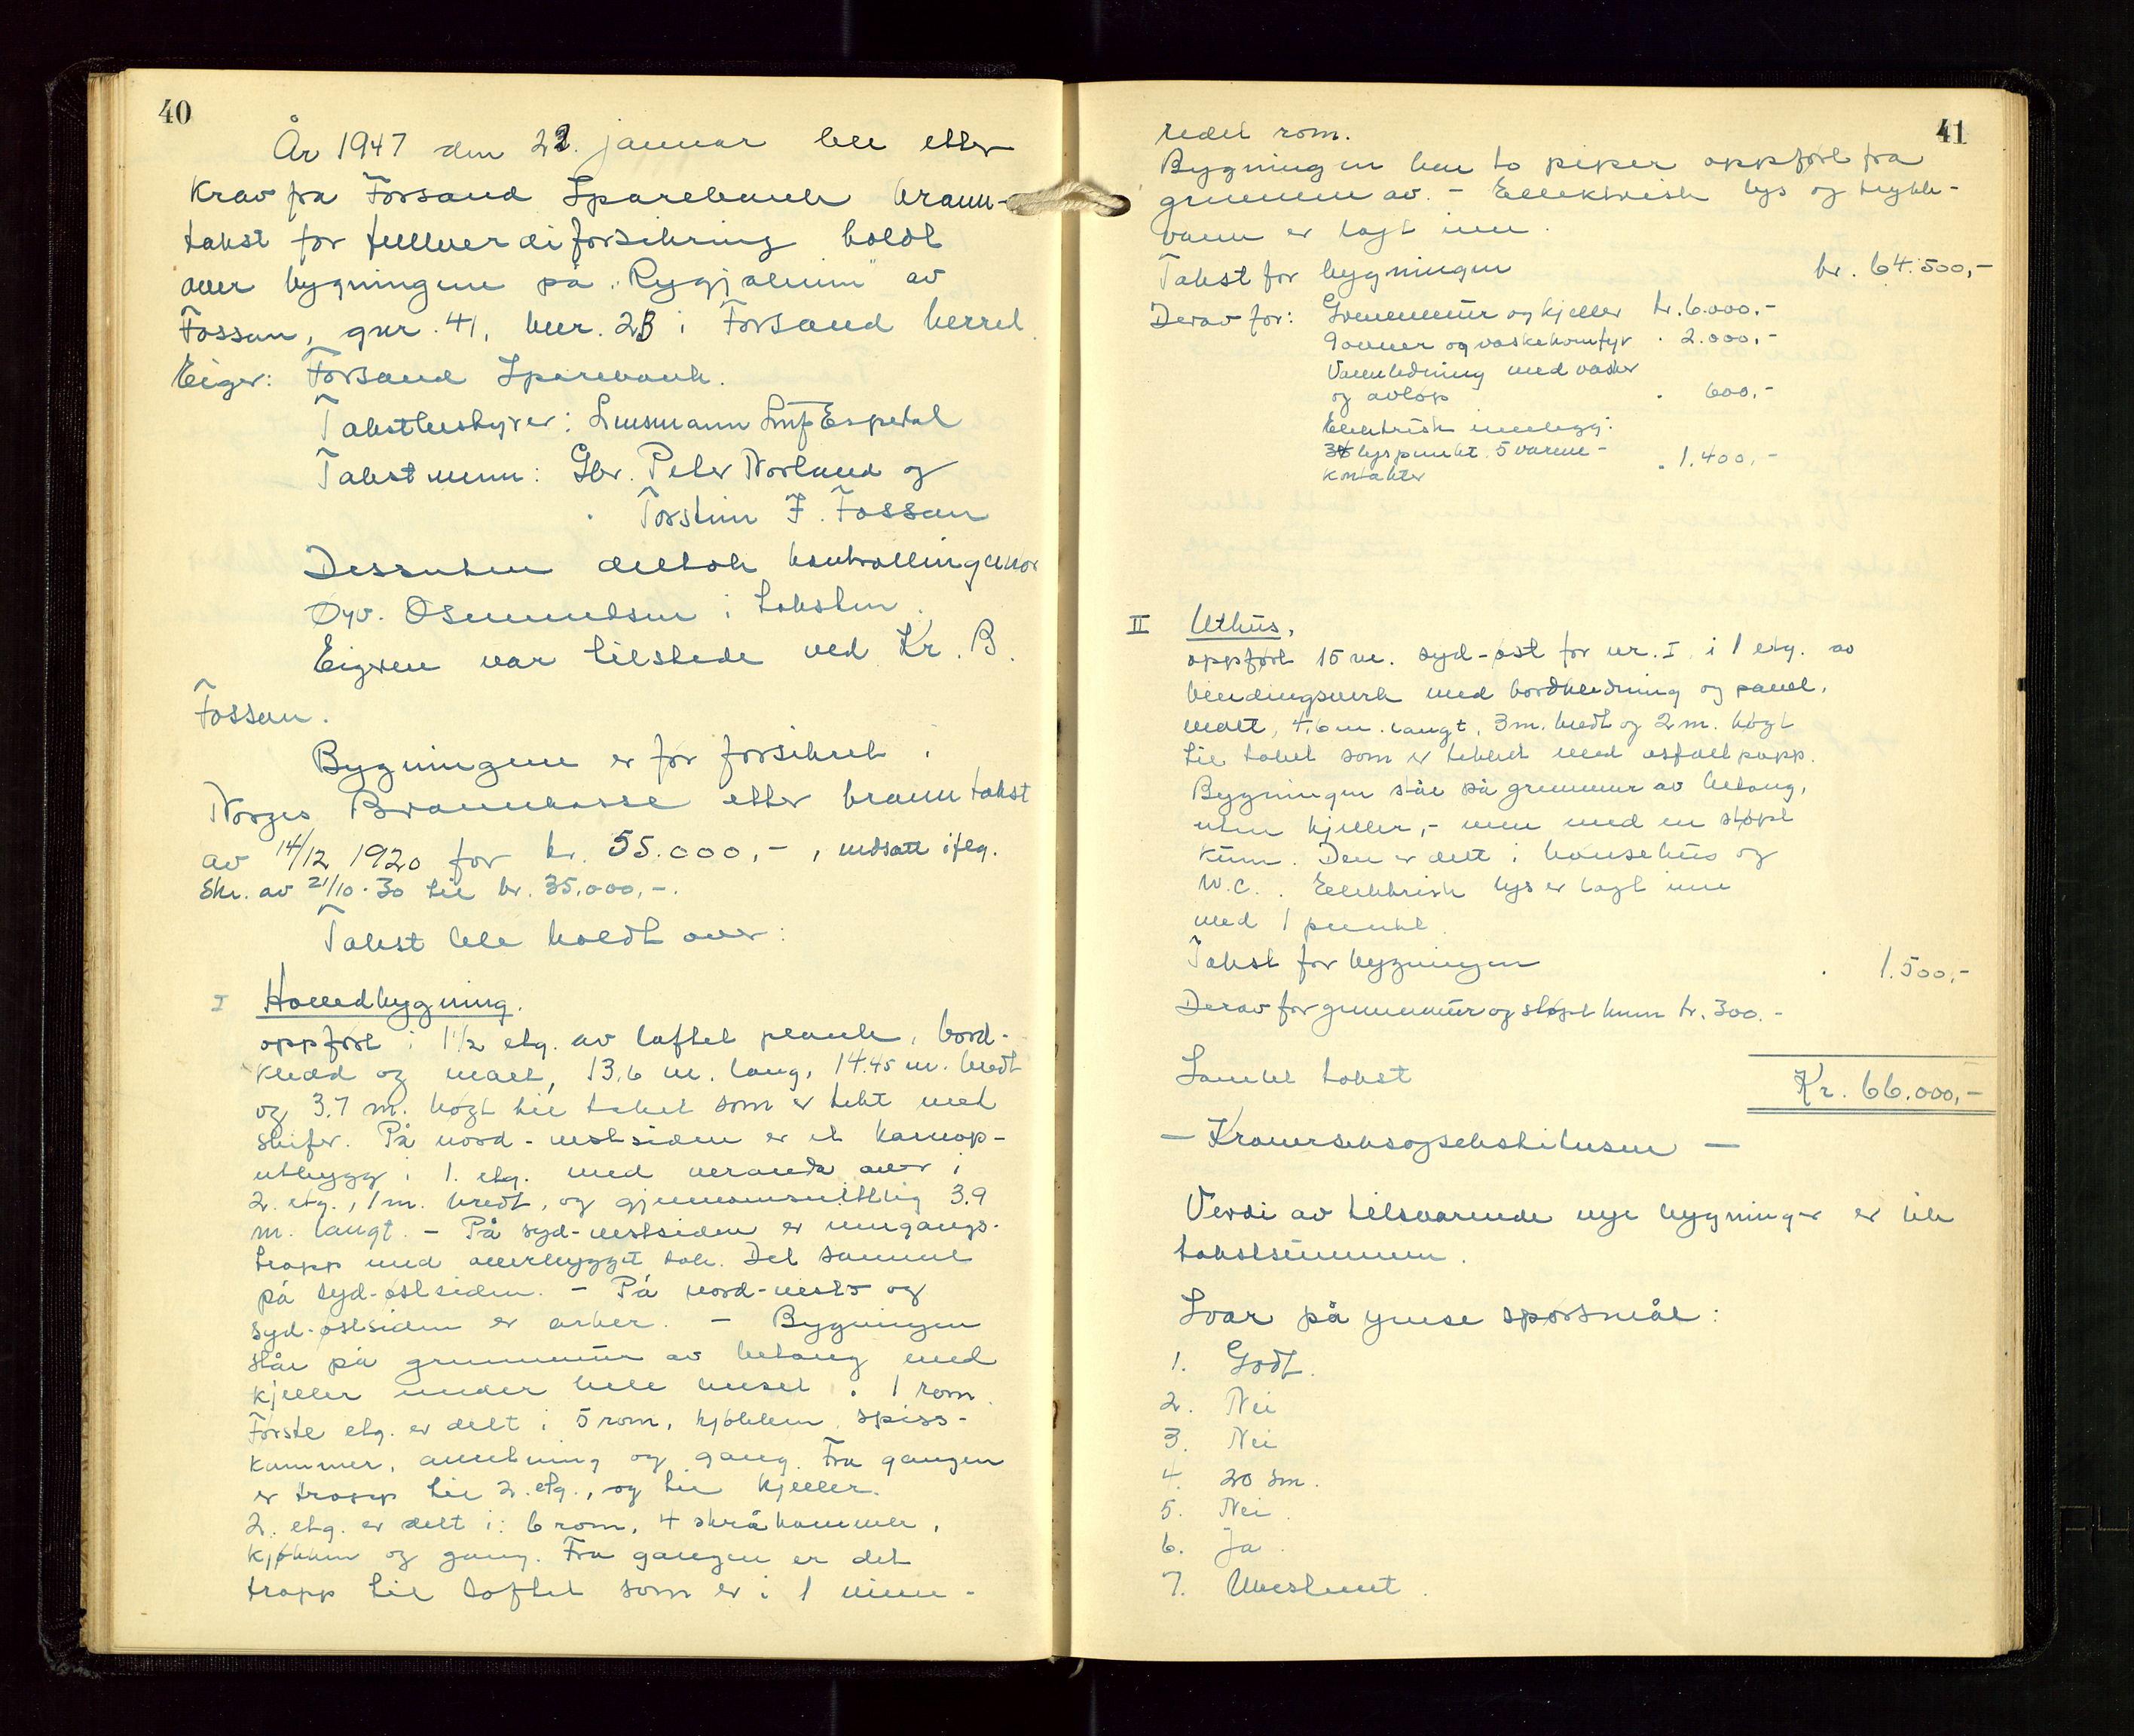 40
År 1947 den 22. januar ble etter
Krav fra Forsand Sparebank brann-
takst for fullverdiforsikring holdt
over bygningene på "Rygjaheim" av
Fossan, gnr. 41, bnr. 23 i Forsand herred.
Eiger: Forsand Sparebank.
Takstbestyrer: Lensmann Espedal
Takstmenn: Gbr. Peter Norland og
" Torstein F. Fossan
Dessuten deltok kontrollingeniør
Øyv. Osmundsen i taksten.
Eigeren var tilstede ved Kr. B.
Fossan.
Bygningene er før forsikret i
Norges Brannkasse etter branntakst
av 14/12 1920 for kr. 55.000,-, nedsatt iflg.
Skr. av 21/10-30 til kr. 35.000,-.
Takst ble holdt over:
I Hovedbygning.
oppført i 1½ etg. av laftet plank, bord-
kledd og malt, 13.6 m. lang, 14.45 m. bredt
og 3.7 m. høgt til taket som er tekt med
skifer. På nord-vestsiden er et karnap-
utbygg i 1. etg. med veranda over i
2. etg., 1 m. bredt, og gjennomsnittlig 3.9
m. langt. - På syd-vestsiden er inngangs-
trapp med overbygget tak. Det samme
på syd-østsiden. - På nord-vest- og
syd-østsiden er arker. - Bygningen
står på grunnmur av betong med
kjeller under hele huset i 1 rom.
Første etg. er delt i 5 rom, kjøkken, spiss-
kammer, anretning og gang. Fra gangen
er trapp til 2. etg., og til kjeller.
2. etg. er delt i: 6 rom, 4 skråkammer,
kjøkken og gang. Fra gangen er det
trapp til loftet som er i 1 uinn-
41
redet rom.
Bygningen har to piper oppført fra
grunnen av. - Ellektrisk lys og trykk-
vann er lagt inn.
Takst for bygningen kr. 64.500,-
Derav for: Grunnmur og kjeller kr. 6.000,-
Ovner og vaskekomfyr " 2.000,-
Vannledning med vasker
og avløp " 600,-
Elektrisk innlegg:
34 lyspunkt 5 varme-
kontakter " 1.400,-
II Uthus,
oppført 15 m. syd-øst for nr. I i 1 etg. av
bindingsverk med bordkledning og panel,
malt, 4,6 m. langt, 3 m. bredt og 2 m. høgt
til taket som er tekket med asfaltpapp.
Bygningen står på grunnmur av betong,
uten kjeller, - men med en støpt
kum. Den er delt i hønsehus og
W.C. . Ellektrisk lys er lagt inn
med 1 punkt.
Takst for bygningen " 1.500,-
Derav for grunnmur og støpt kum kr. 300.-
Samlet takst Kr. 66.000,-
- Kronersekstisekstitusen -
Verdi av tilsvarende nye bygninger er lik
takstsummen.
Svar på ymse spørsmål:
1. Godt.
2. Nei
3. Nei
4. 20 sm.
5. Nei.
6. Ja.
7. Ubestemt.